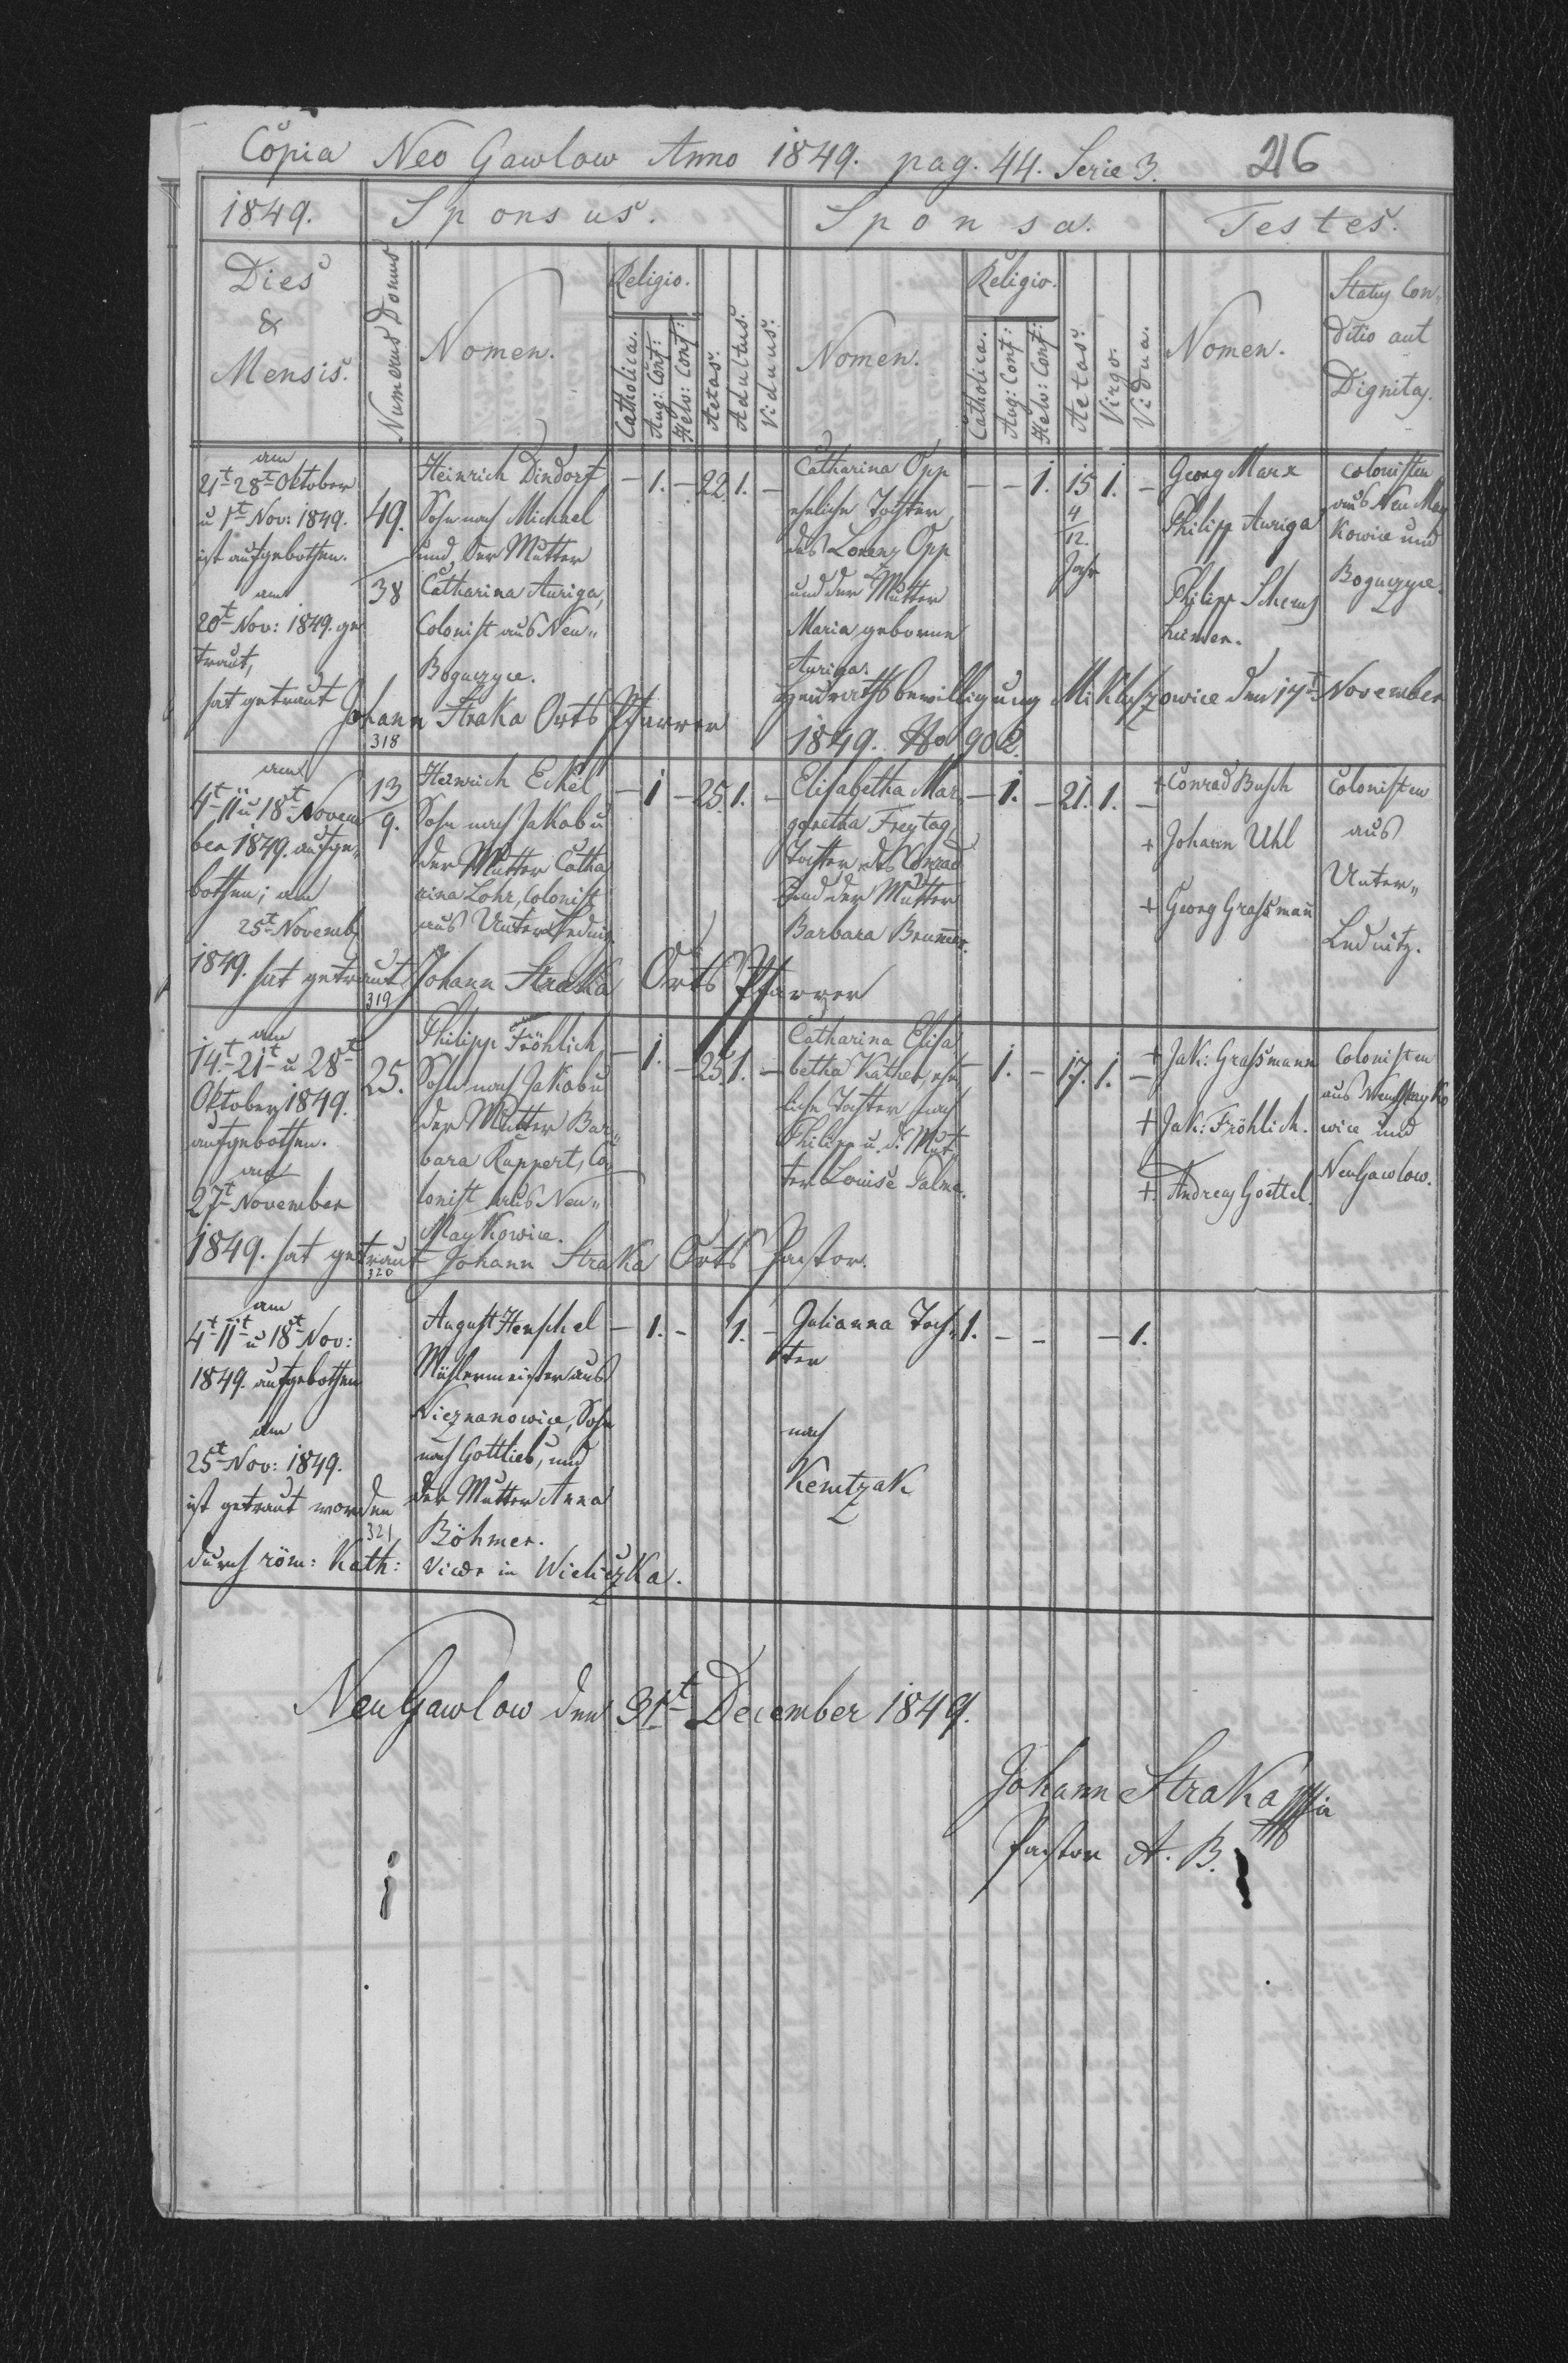 Copia Neo Gawlow Anno 1849. pag. 44. Serie 3. 216
1849. Sponsus. Sponsa. Testes.
Dies
&
Mensis.
Numerus Domus
Nomen.
Religio.
Catholica.
Aug: Conf:
Helv: Conf:
Aetas.
Adultus.
Viduus.
Nomen.
Religio.
Catholica.
Aug: Conf:
Helv: Conf:
Aetas.
Virgo.
Vidua.
Nomen.
Status Con„
ditio aut
Dignitas.
am
21t 28t Oktober
u 1t Nov: 1849.
ist aufgebothen.
am
20t Nov: 1849. ge
traut,
hat getraut Johann Straka Orts Pfarrer
318
49.
38
Heinrich Dindorf
Sohn nach Michael
und der Mutter
Catharina Auriga,
Colonist aus Neu„
Boguczyce.
– 1. – 22 1. –
Catharina Opp
eheliche Tochter
des Lorenz Opp
und der Mutter
Maria, geborne
Auriga.
– – 1. 15 1. –
4
12.
Jahr
Georg Manx
Philipp Auriga
Philipp Schems
Colonisten
aus Neu May
kowice und
Boguczyce.
Heurathsbewilligung Miklaszowice den 17t November
1849. No 902
am
4t 11 u 18t Novem
ber 1849. aufge„
bothen; am
25t Novemb
1849. hat getraut Johann Straka Orts Pfarrer
319
13
9.
Heinrich Eckel
Sohn nach Jakob u
der Mutter Catha
rina Lohr, Colonist
aus Unter Lednitz
– 1 – 25. 1. –
Elisabetha Mar„
garetha Freytag,
Tochter des Conrad
und der Mutter
Barbara Brunner.
– 1. – 21. 1. –
+ Conrad Busch
+ Johann Uhl
+ Georg Graßmann
Colonisten
aus
Unter„
Lednitz.
am
14.t 21t u 28t
Oktober 1849.
aufgebothen.
am
27t November
1849. hat getraut Johann Straka Orts Pastor.
320
25.
Philipp Fröhlich
Sohn nach Jakob u
der Mutter Bar„
bara Ruppert, Co„
lonist aus Neu„
Maykowice.
– 1. – 25. 1. –
Catharina Elisa
betha Kather, ehe
liche Tochter nach
Philipp u. d. Mut„
ter Louise Palma.
1. – 17. 1. –
+ Jak: Graßmann
+ Jak: Fröhlich.
+ Andreas Goettel
Colonisten
aus Neu Mayko
wice und
Neu Gawlow.
am
4t 11t u 18t Nov:
1849. aufgebothen
am
25t Nov: 1849.
ist getraut worden
321
durch röm: Kath: Vicar in Wieliczka.
August Henschel
Mühlermeister aus
Nieznanowice, Sohn
nach Gottlieb, und
der Mutter Anna
Böhmer.
– 1. – 1. –
Julianna Toch„
ter
nach
Kemtzak
1. – – – 1.
Neu Gawlow den 31t December 1849.
Johann Straka
Pastor A. B.